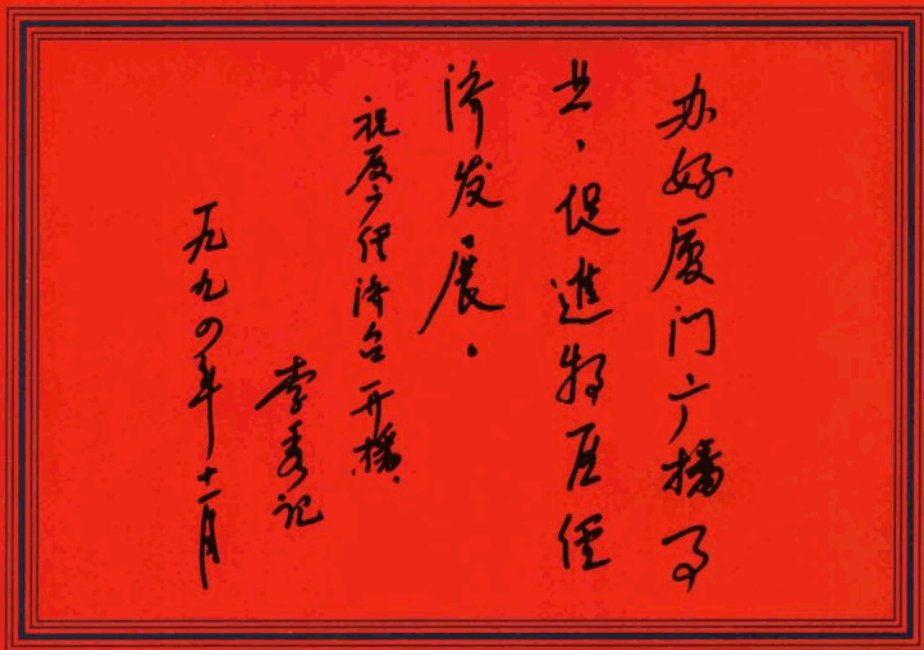 办好厦门广播事
业，促進特区经
济发展。
祝厦广经济台开播
李秀记
一九九四年十一月